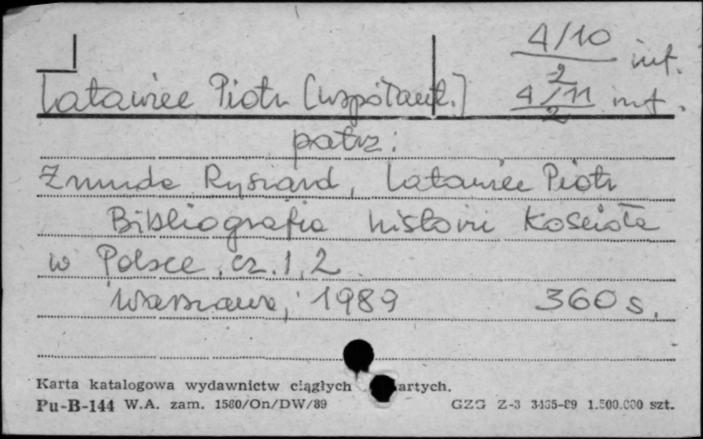 4/10
2 inf.
Latawiec Piotr [współaut.] 4/11
2 inf.
patrz:
Żmuda Ryszard, Latawiec Piotr
Bibliografia historii Kościoła
w Polsce, cz. 1, 2
Warszawa, 1989 360 s.
Karta katalogowa wydawnictw ciągłych artych.
Pu-B-144 W.A. zam. 1580/On/DW/89 GZG Z-3 3435-89 1.500.000 szt.